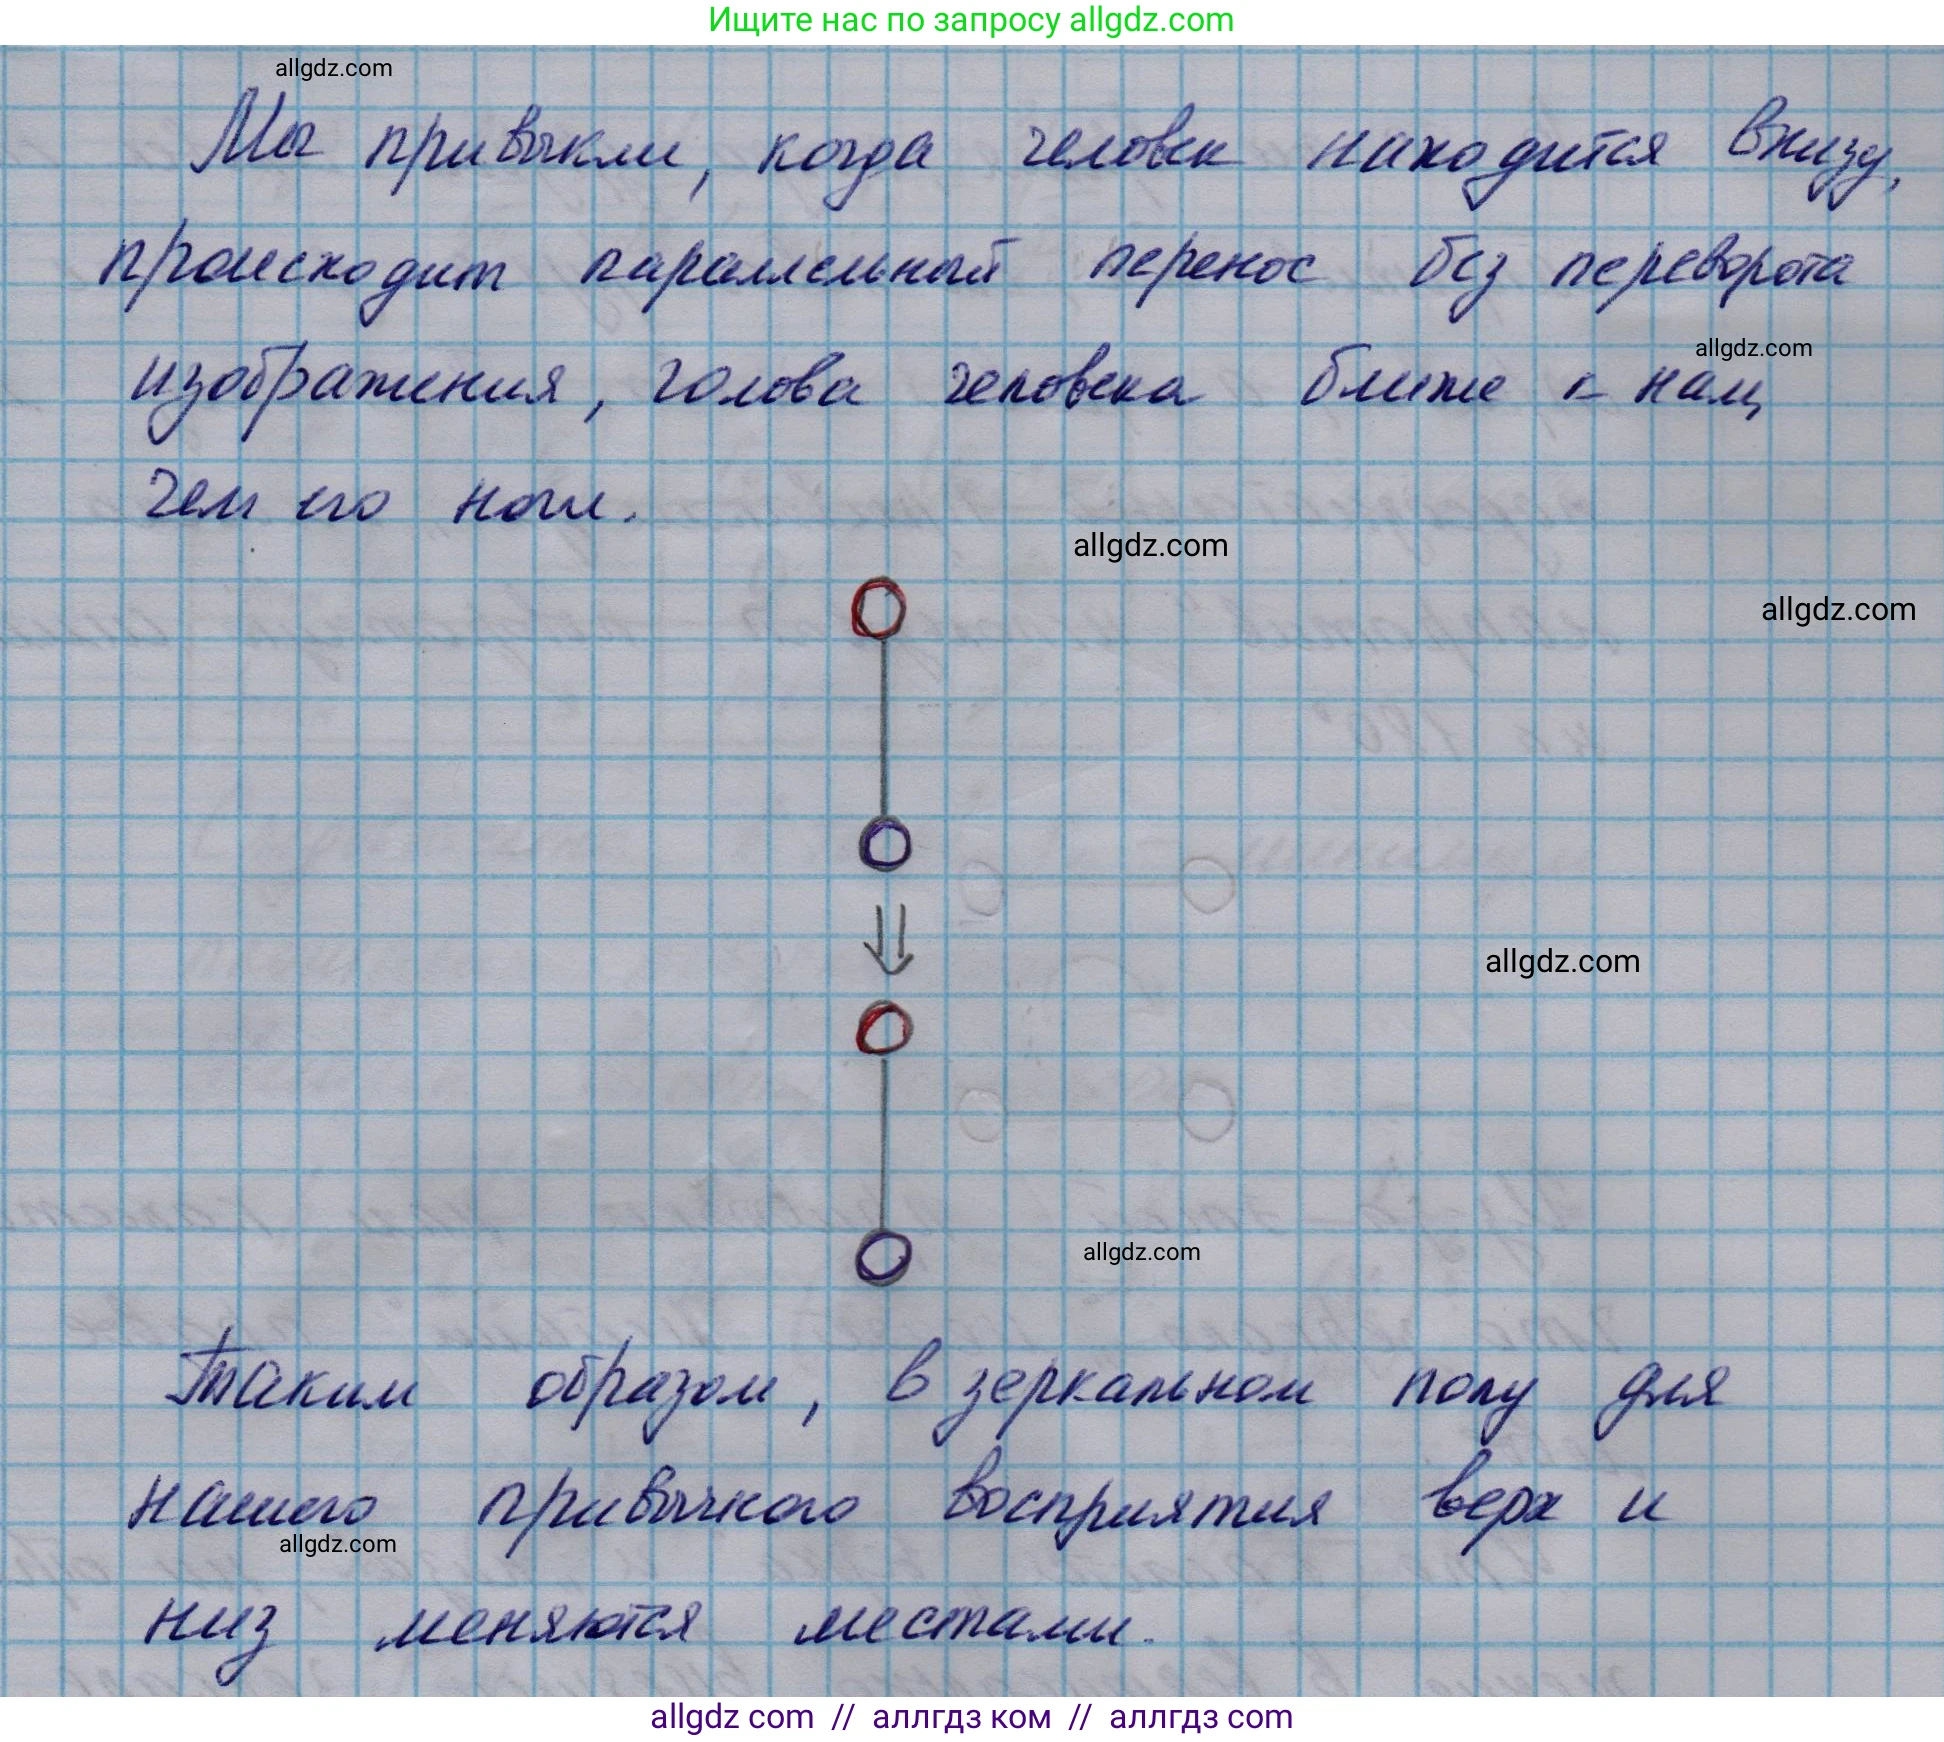 Ищите нас по запросу allgdz.com
allgdz.com
Мы привыкли, когда человек находится внизу,
происходит параллельный перенос без переворота
allgdz.com
изображения, голова человека ближе к нам,
чем его ноги.
allgdz.com
allgdz.com
allgdz.com
allgdz.com
Таким образом, в зеркальном полу для
нашего привычного восприятия верх и
allgdz.com
низ меняются местами.
allgdz com // аллгдз ком // аллгдз com